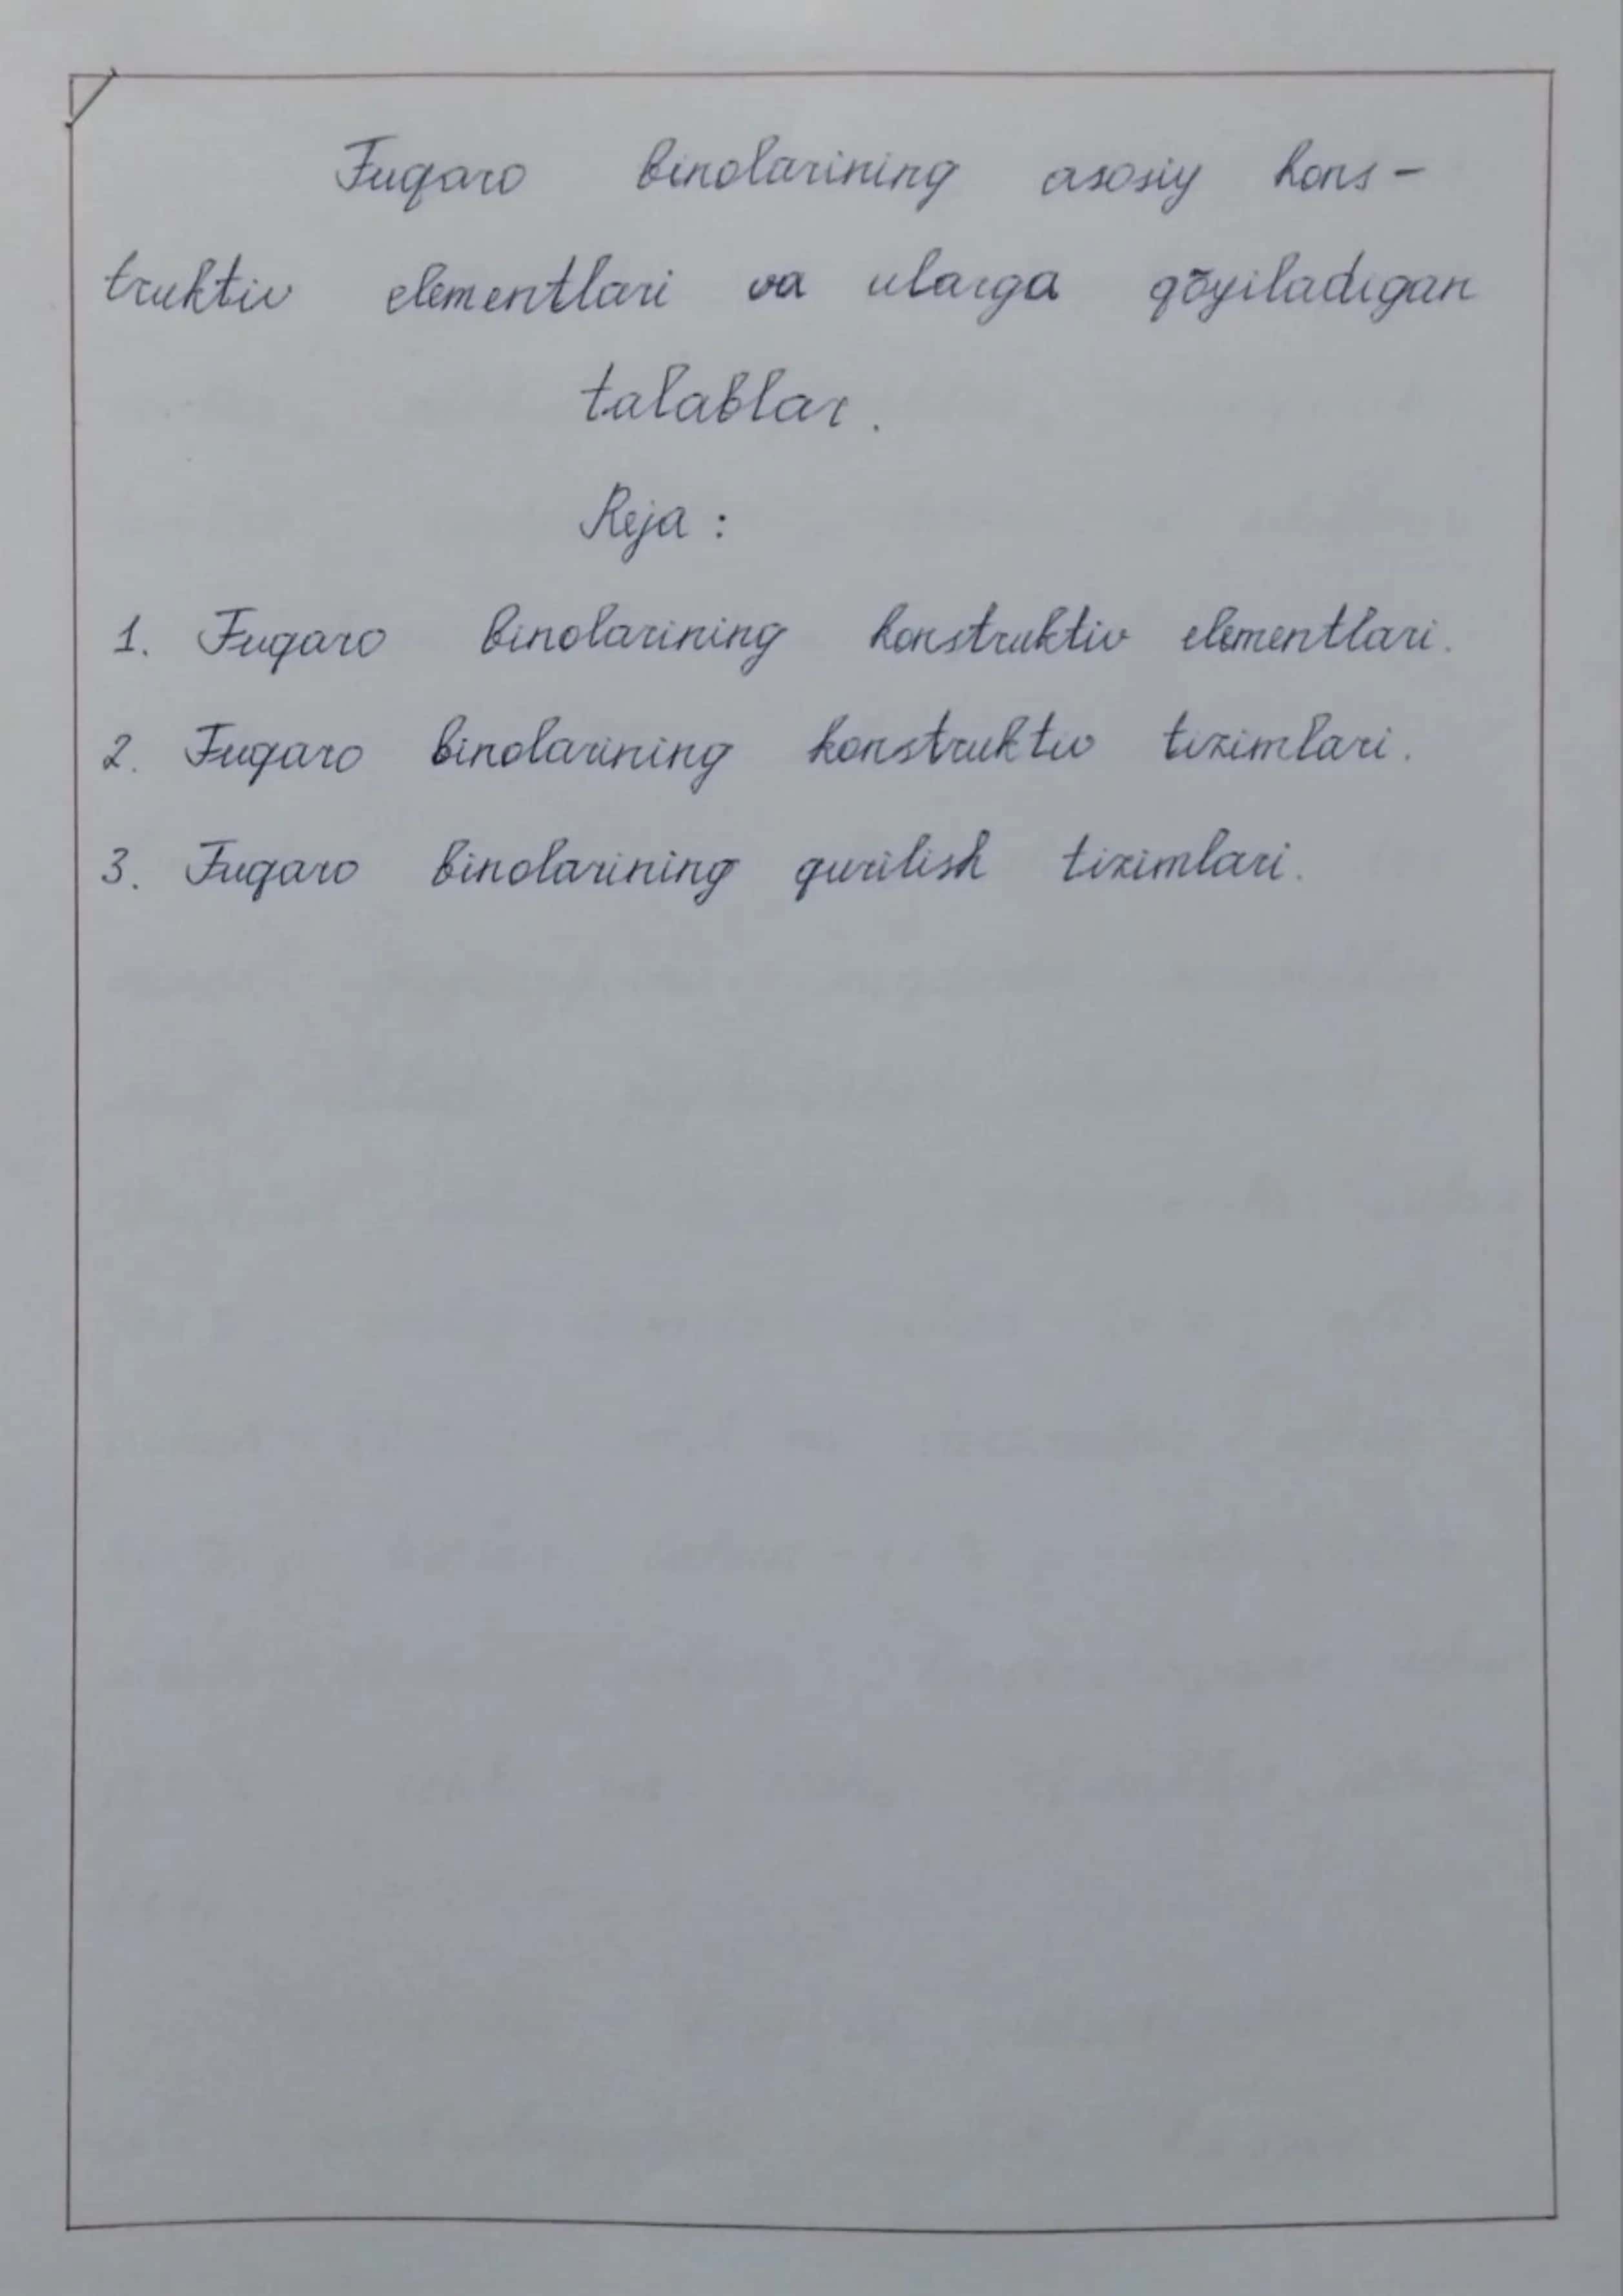 Fuqaro binolarining asosiy kons-
truktiv elementlari va ularga qõyiladigan
talablar.
Reja:
1. Fuqaro binolarining konstruktiv elementlari.
2. Fuqaro binolarining konstruktiv tizimlari.
3. Fuqaro binolarining qurilish tizimlari.